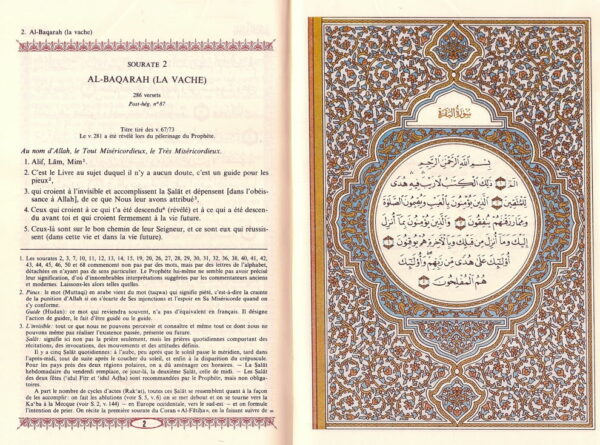 2. Al-Baqarah (la vache)
SOURATE 2
AL-BAQARAH (LA VACHE)
286 versets
Post-hég. n° 87
Titre tiré des v. 67/73
Le v. 281 a été révélé lors du pèlerinage du Prophète.
Au nom d'Allah, le Tout Miséricordieux, le Très Miséricordieux.
1. Alif, Lâm, Mim¹.
2. C'est le Livre au sujet duquel il n'y a aucun doute, c'est un guide pour les
pieux².
3. qui croient à l'invisible et accomplissent la Salât et dépensent [dans l'obéis-
sance à Allah], de ce que Nous leur avons attribué³.
4. Ceux qui croient à ce qui t'a été descendu⁴ (révélé) et à ce qui a été descen-
du avant toi et qui croient fermement à la vie future.
5. Ceux-là sont sur le bon chemin de leur Seigneur, et ce sont eux qui réussis-
sent (dans cette vie et dans la vie future).
1. Les sourates 2, 3, 7, 10, 11, 12, 13, 14, 15, 19, 20, 26, 27, 28, 29, 30, 31, 32, 36, 38, 40, 41, 42,
43, 44, 45, 46, 50 et 68 commencent non pas par des mots, mais par des lettres de l'alphabet,
détachées en n'ayant pas de sens particulier. Le Prophète lui-même ne semble pas avoir précisé
leur signification, d'où d'innombrables interprétations suggérées par les commentateurs anciens
et modernes. Laissons-les alors telles quelles.
2. Pieux: le mot (Muttaqi) en arabe vient du mot (taqwa) qui signifie piété, c'est-à-dire la crainte
de la punition d'Allah si on s'écarte de Ses injonctions et l'espoir en Sa Miséricorde quand on
s'y conforme.
Guide (Hudan): ce mot qui reviendra souvent, n'a pas d'équivalent en français. Il désigne
l'action de guider, le fait d'être guidé ou le guide.
3. L'invisible: tout ce que nous ne pouvons percevoir et connaître et même tout ce dont nous ne
pouvons même pas réaliser l'existence passée, présente ou future.
Salât: signifie ici non pas la prière seulement, mais les prières quotidiennes comportant des
récitations, des invocations, des mouvements et des attitudes définis.
Il y a cinq Salât quotidiennes: à l'aube, peu après que le soleil passe le méridien, tard dans
l'après-midi, tout de suite après le coucher du soleil, et enfin à la disparition du crépuscule.
Pour les pays près des deux régions polaires, on a dû aménager ces horaires. — La Salât
hebdomadaire du vendredi remplace, ce jour-là, la deuxième Salât, celle de midi. — Les Salât
des deux fêtes ('idul Fitr et 'idul Adha) sont recommandées par le Prophète, mais non obliga-
toires.
A part le nombre de cycles d'actes (Rak'at), toutes ces Salât se ressemblent quant à la façon
de les accomplir: on fait les ablutions (voir S. 5, v. 6) on se met debout et on se tourne vers la
Ka'ba à la Mecque (voir S. 2, v. 144) — en Europe occidentale, vers le sud-est — et on formule
l'intention de prier. On récite la première sourate du Coran «Al-Fâtiha», en la faisant suivre de
2
سورة البقرة
بسم الله الرحمن الرحيم
الم ذلك الكتب لا ريب فيه هدى
للمتقين الذين يؤمنون بالغيب ويقيمون الصلوة
ومما رزقنهم ينفقون والذين يؤمنون بما أنزل
إليك وما أنزل من قبلك وبالآخرة هم يوقنون
أولئك على هدى من ربهم وأولئك
هم المفلحون